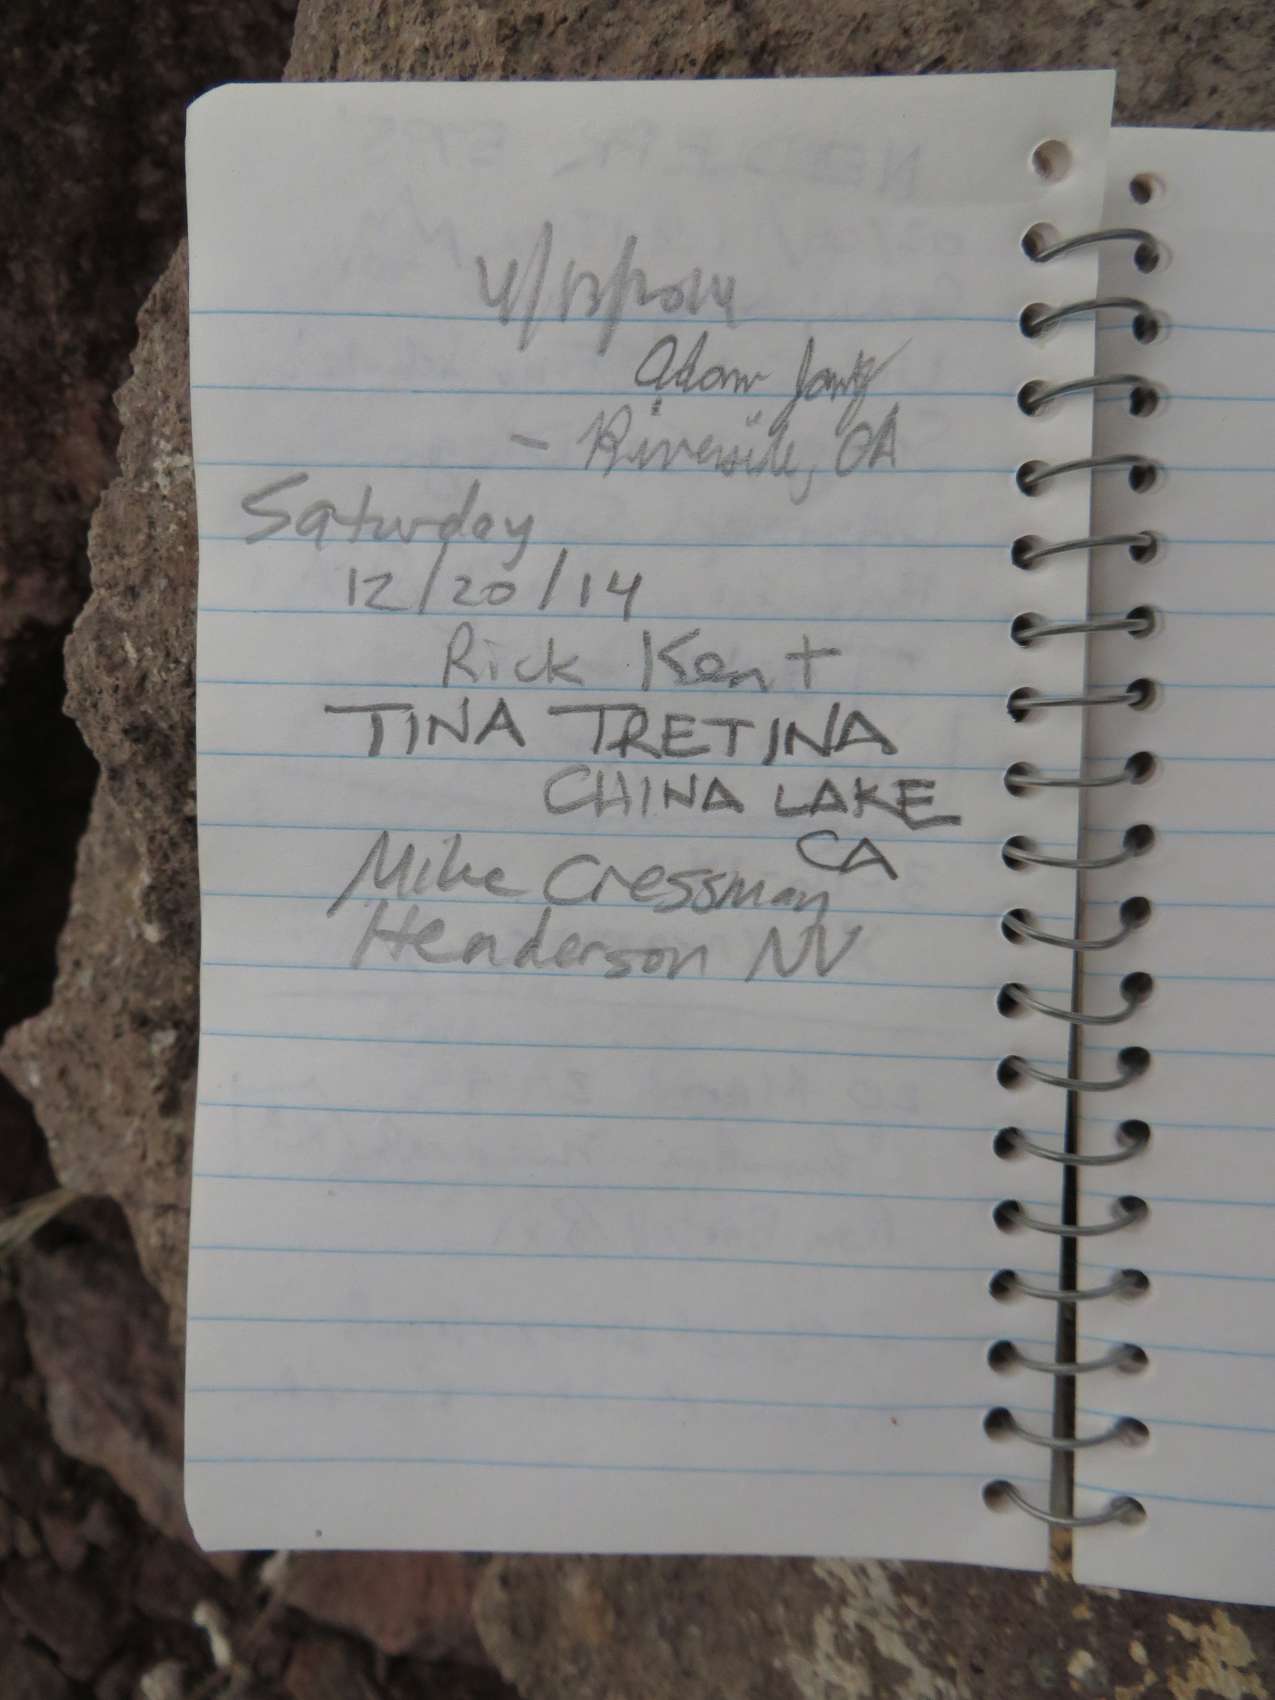 4/13/2014
Adam
- Riverside, CA
Saturday
12/20/14
Rick Kent
TINA TRETINA
CHINA LAKE
CA
Mike Cressman
Henderson NV